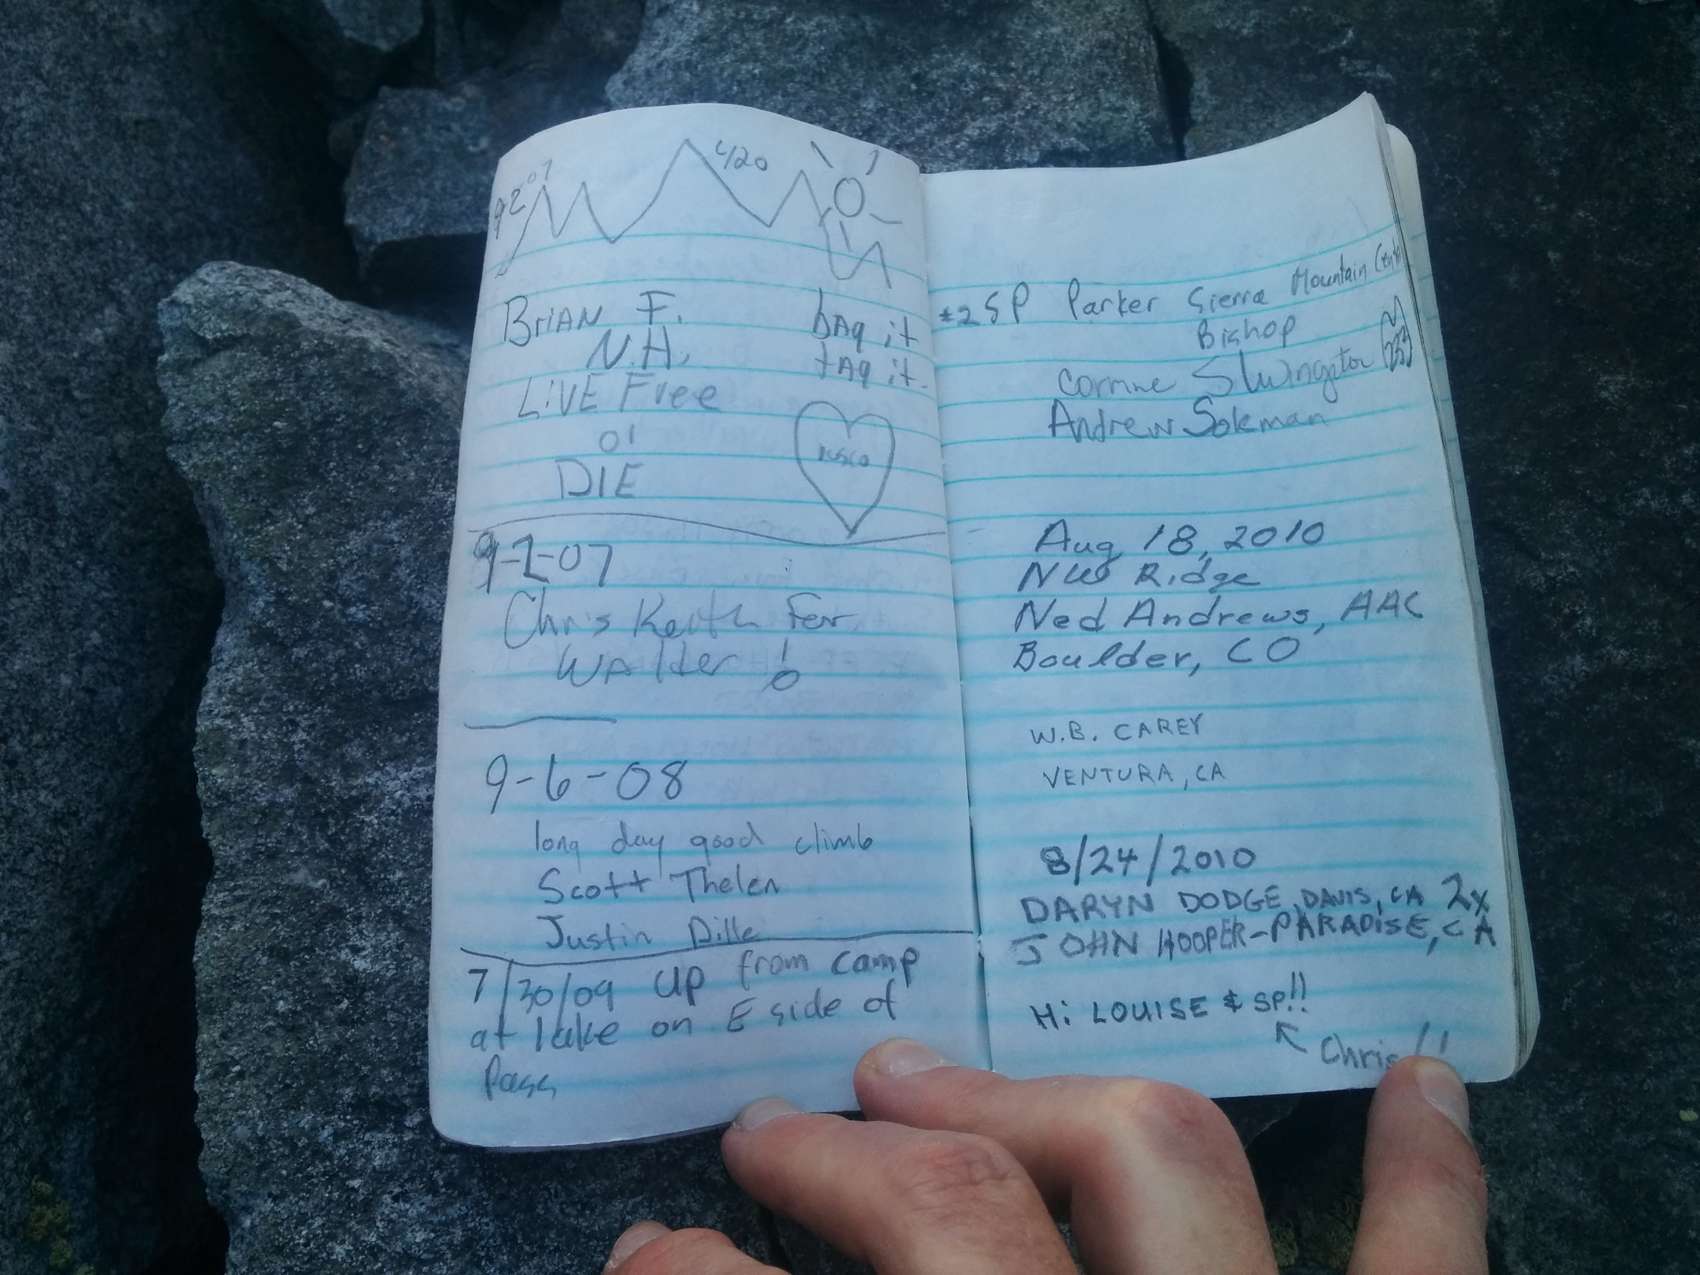 9-2-07
4/20
BRIAN F.
N.H.
LIVE Free
or
DIE
bAg it
tAg it.
9-2-07
Chris Keith Fer
WAlter!
9-6-08
long day good climb
Scott Thelen
Justin Dille
7/30/09 up from camp
at lake on E side of
Pass
SP Parker Sierra Mountain Center
Bishop
Corrine
Andrew
Aug 18, 2010
NW Ridge
Ned Andrews, AAC
Boulder, CO
W.B. CAREY
VENTURA, CA
8/24/2010
DARYN DODGE, DAVIS, CA 2x
JOHN HOOPER-PARADISE, CA
Hi LOUISE & SP!!
Chris!!